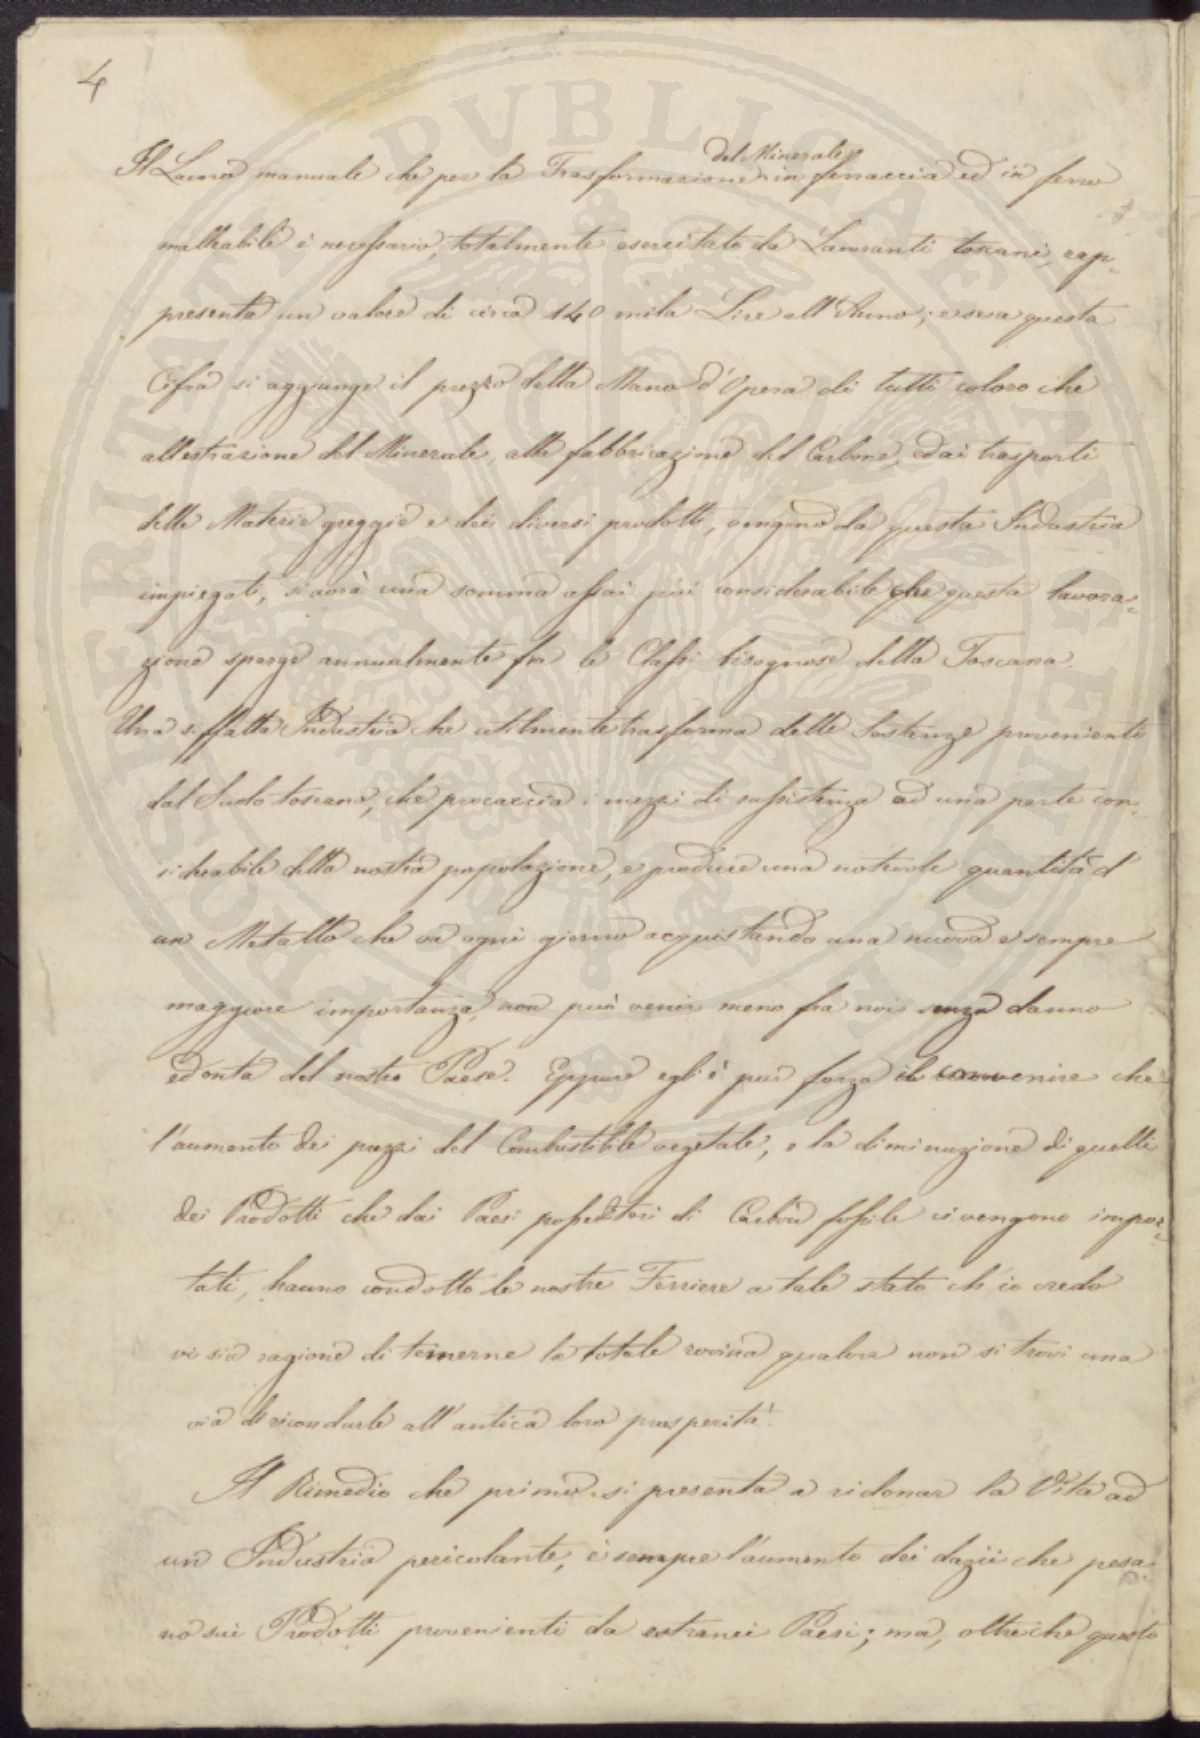 4
del Minerale
Il Lavoro manuale che per la Trasformazione in ferraccia ed in ferro
malleabile è necessario, totalmente esercitato da Lavoranti toscani, rap-
presenta un valore di circa 140 mila Lire all'Anno; e se a questa
Cifra si aggiunge il prezzo della Mano d'Opera di tutti coloro che
all'estrazione del Minerale, alla fabbricazione del Carbone, ed ai trasporti
delle Materie greggie e dei diversi prodotti, vengono da questa Industria
impiegati, si avrà una somma assai più considerabile che questa lavora-
zione sparge annualmente fra le Classi bisognose della Toscana.
Una siffatta Industria che utilmente trasforma delle Sostanze provenienti
dal Suolo toscano, che procaccia i mezzi di sussistenza ad una parte con-
siderabile della nostra popolazione, e produce una notevole quantità d'
un Metallo che va ogni giorno acquistando una nuova e sempre
maggiore importanza, non può venir meno fra noi senza danno
ed onta del nostro Paese. Eppure egli è pur forza il convenire che
l'aumento dei prezzi del Combustibile vegetale, e la diminuzione di quelli
dei Prodotti che dai Paesi posseditori di Carbon fossile ci vengono impor-
tati, hanno condotto le nostre Ferriere a tale stato ch'io credo
vi sia ragione di temerne la totale rovina qualora non si trovi una
via di ricondurle all'antica loro prosperità.
Il Rimedio che primo si presenta a ridonar la Vita ad
un Industria pericolante, è sempre l'aumento dei dazii che pesa-
no sui Prodotti provenienti da estranei Paesi; ma, oltreche questo